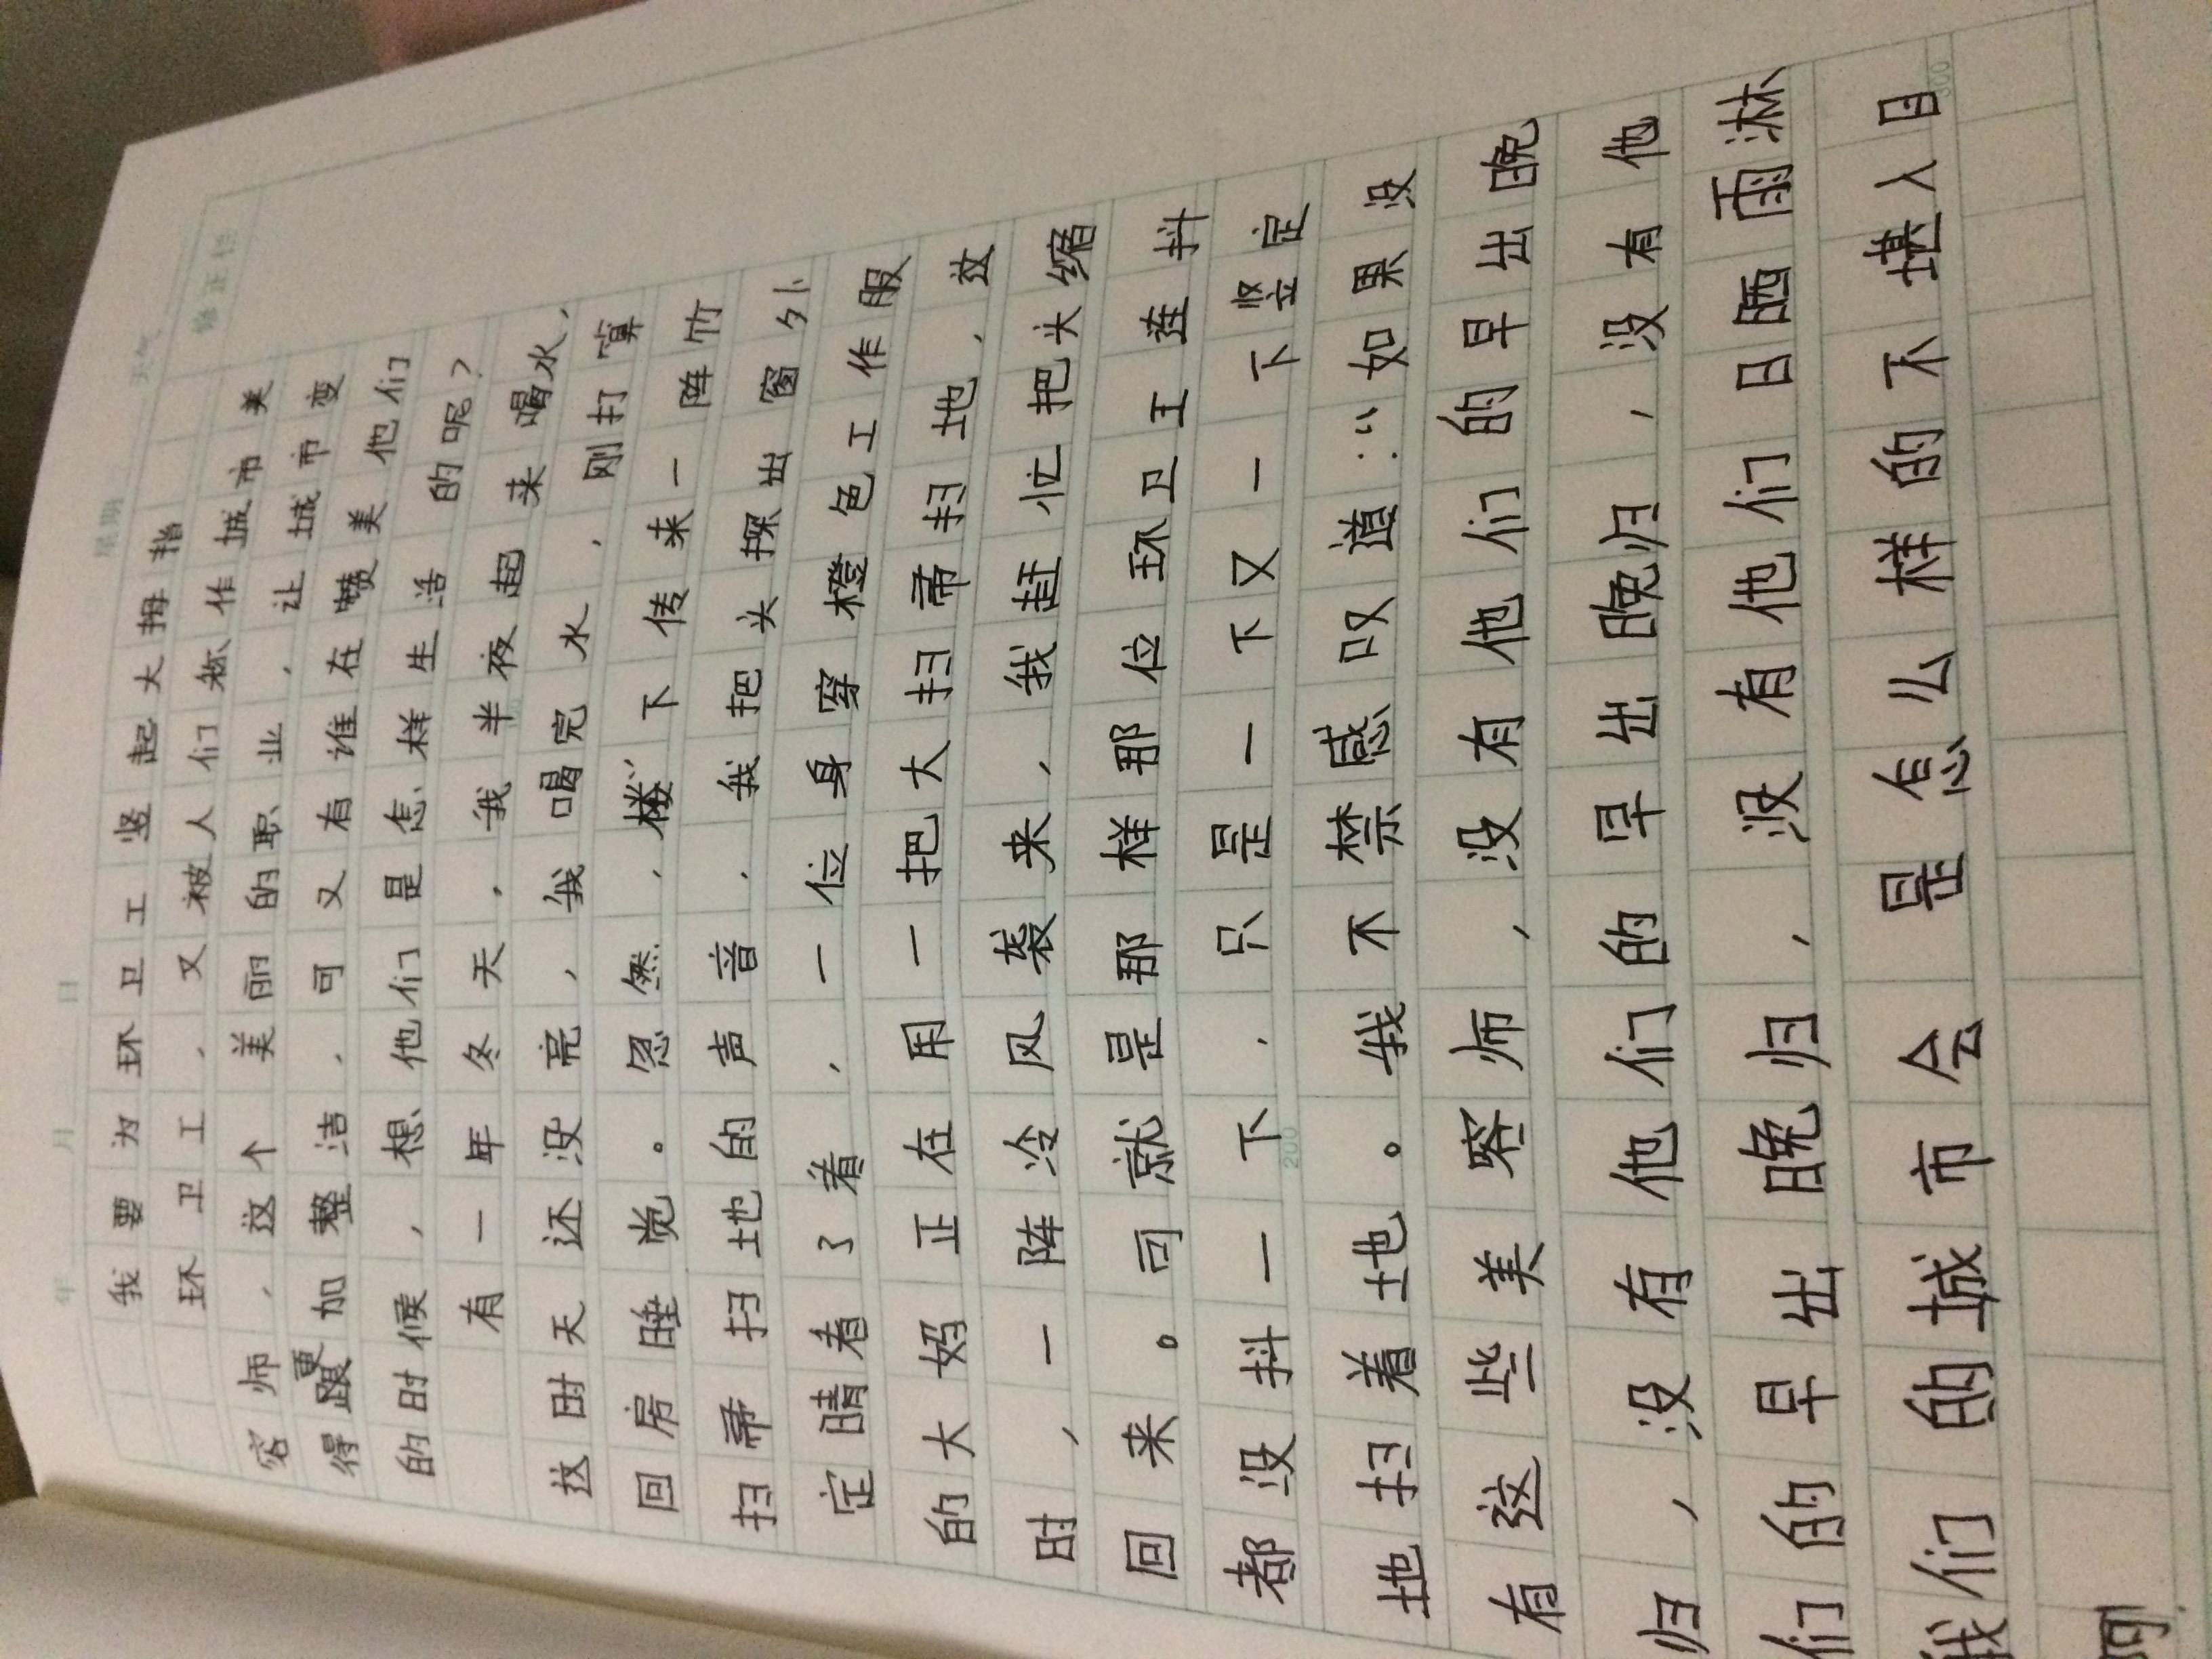 年 月 日 星期 天气
修正栏
我要为环卫工竖起大拇指
环卫工，又被人们称作城市美
容师，这个美丽的职业，让城市变
得更加整洁，可又有谁在赞美他们
的时候，想他们是怎样生活的呢？
有一年冬天，我半夜起来喝水，
这时天还没亮，我喝完水，刚打算
回房睡觉。忽然，楼下传来一阵竹
扫帚扫地的声音，我把头探出窗外
定睛看了着，一位身穿橙色工作服
的大妈正在用一把大扫帚扫地，这
时，一阵冷风袭来，我赶忙把头缩
回来。可就是那样那位环卫工连抖
都没抖一下，只是一下又一下竖定
200
地扫着地。我不禁感叹道：“如果没
有这些美容师，没有他们的早出晚
归，没有他们的早出晚归，没有他
们的早出晚归，没有他们日晒雨淋
我们的城市会是怎么样的不堪入目
300
啊!